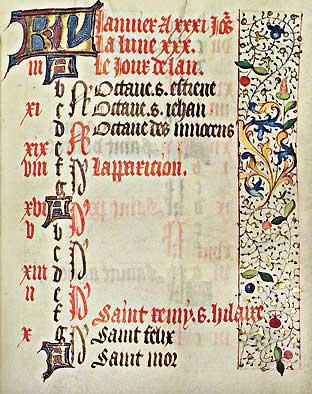 KL Januier A xxxi Jo's
La lune xxx.
iii A Le Jour de lan.
b N Octaue. s. estiene
xi c Octaue. s. iehan
d N Octaue des innocens
xix e
viii f Lapparicion.
g
xvi A
v b
c
xiii d
ii e
f Saint remy. s. hilaire
x g Saint felix
A Saint mor